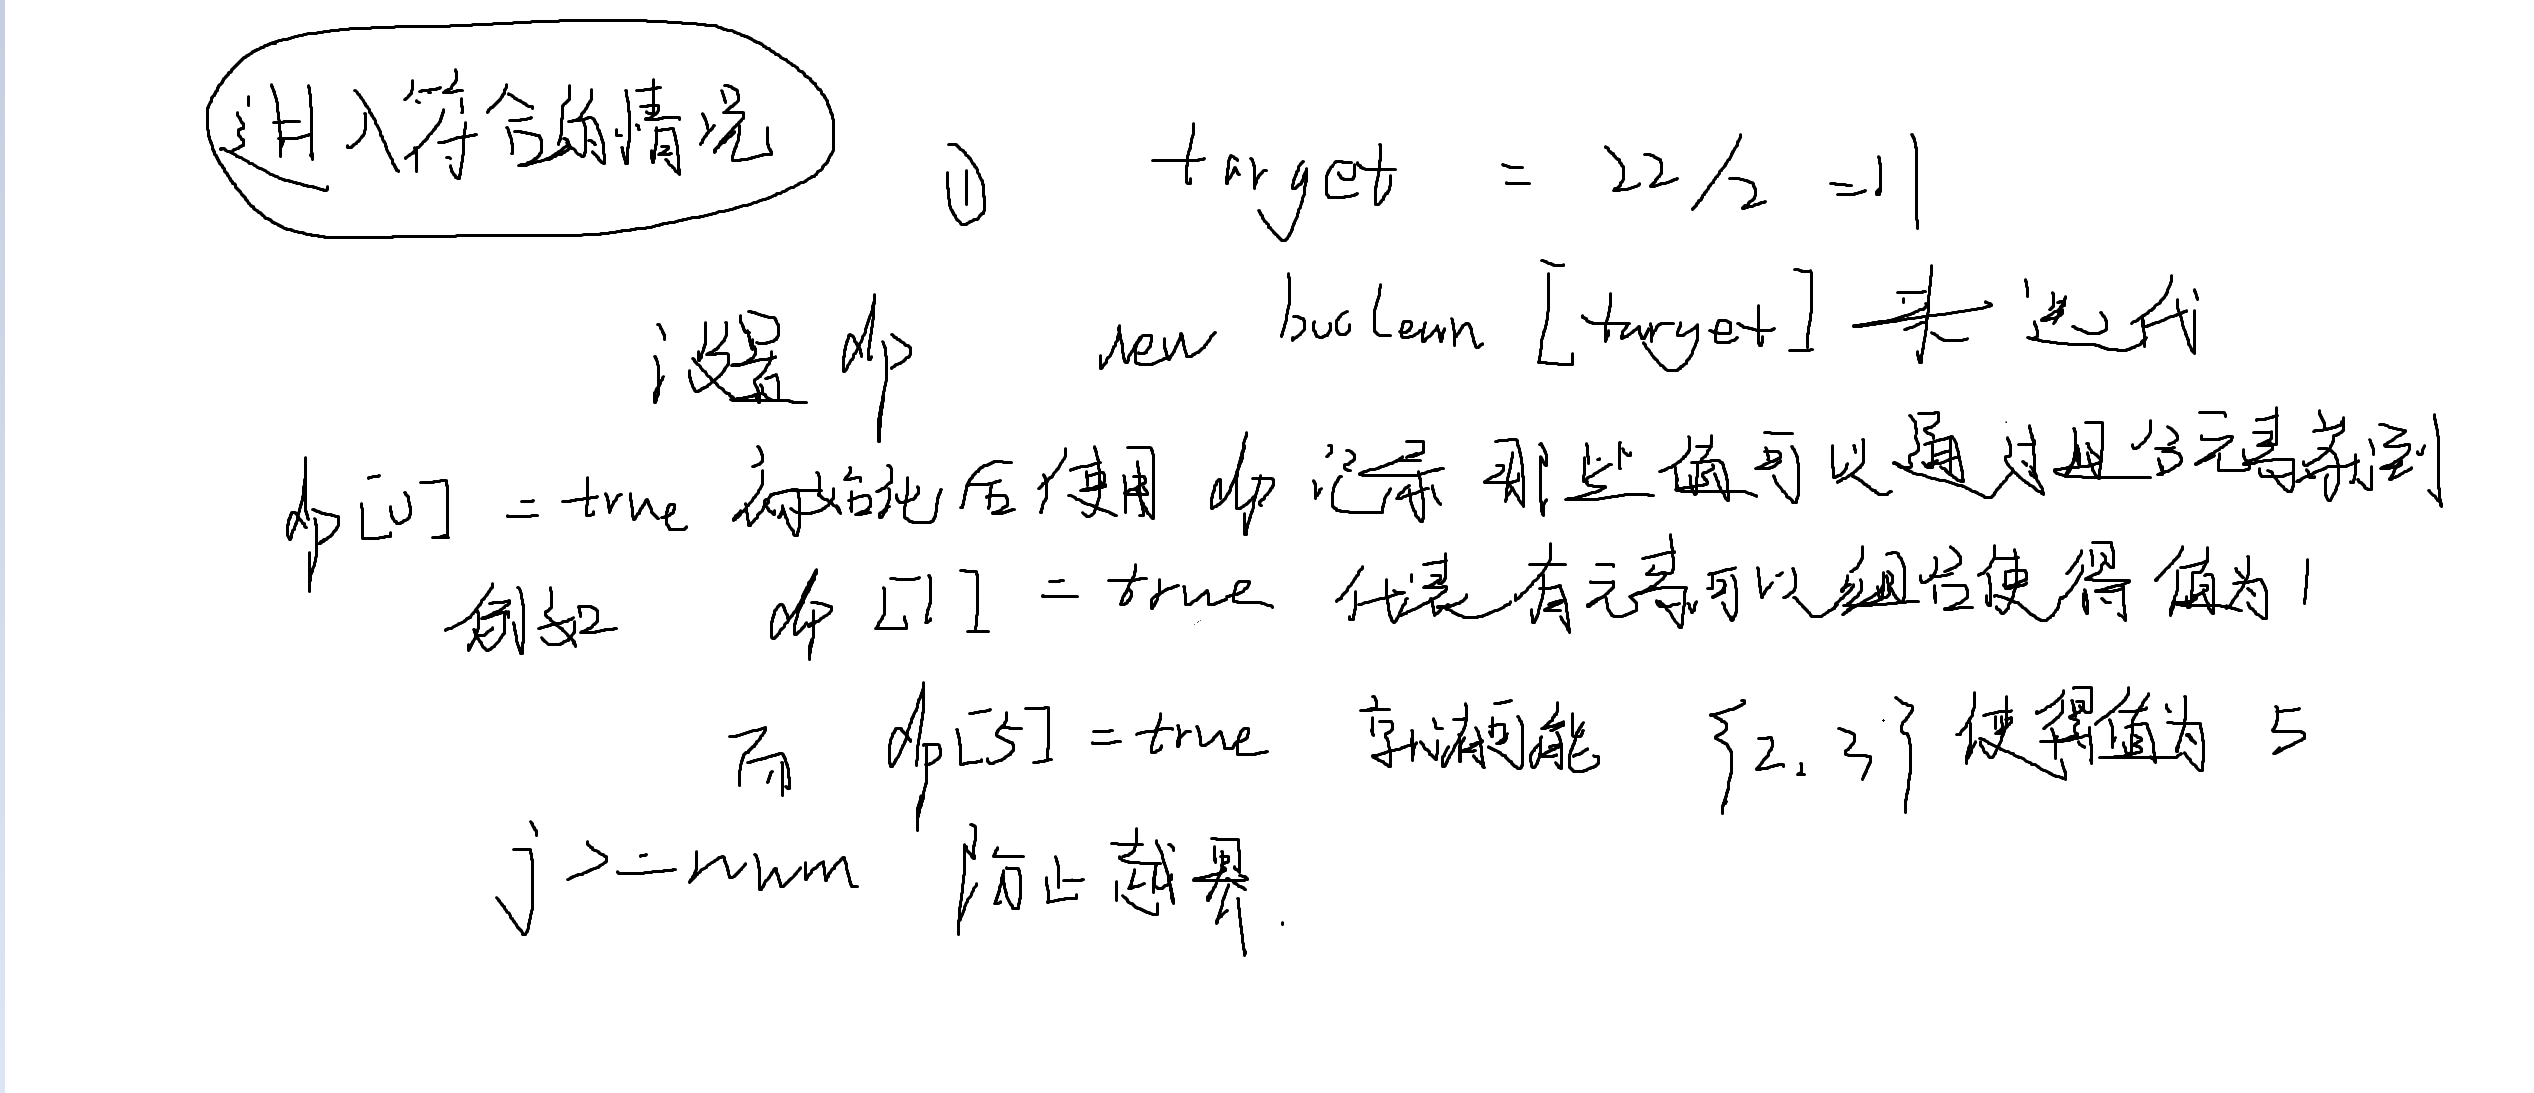 进入符合的情况
① target = 22/2 =11
设置 dp new boolean [target] 来迭代
dp[0] = true 初始化后使用 dp 记录 那些值可以通过组合元素来得到
例如 dp [1] = true 代表有元素可以组合使得值为1
而 dp[5] = true 就有可能 {2, 3} 使得值为 5
j >= num 防止越界.